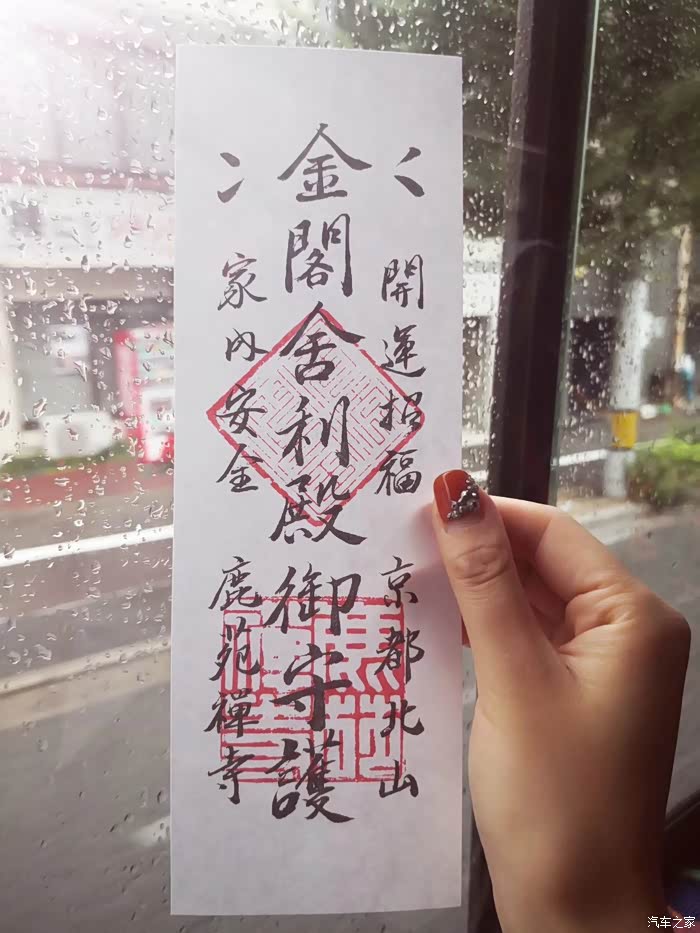 開運招福 京都北山
金閣舎利殿御守護
家内安全 鹿苑禪寺
汽车之家